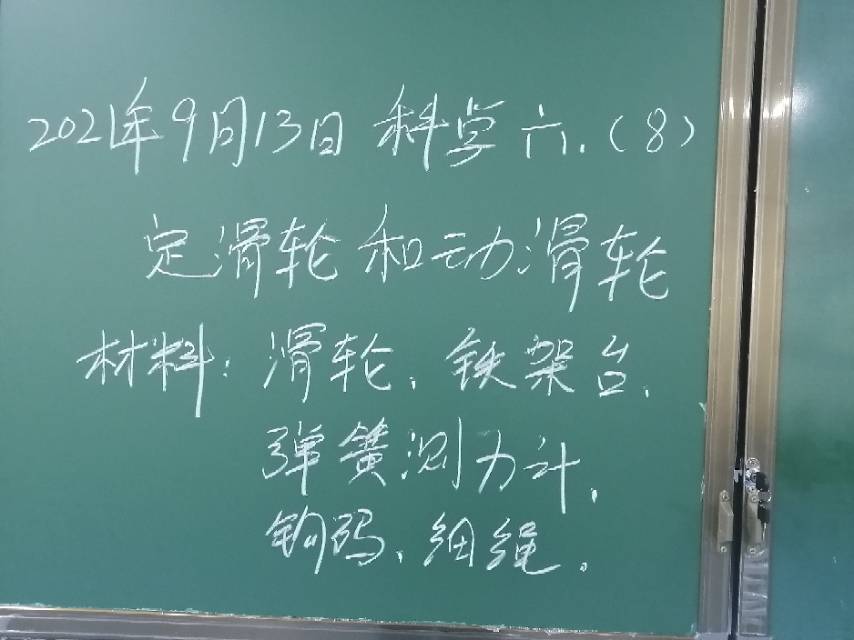 2021年9月13日 科学 六.(8)
定滑轮和动滑轮
材料:滑轮、铁架台、
弹簧测力计、
钩码、细绳。